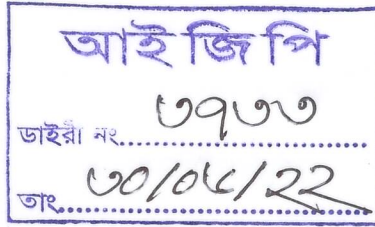 আই জি পি
ডাইরী নং..................৩৭৩৩
তাং..................৩০/০৬/২২